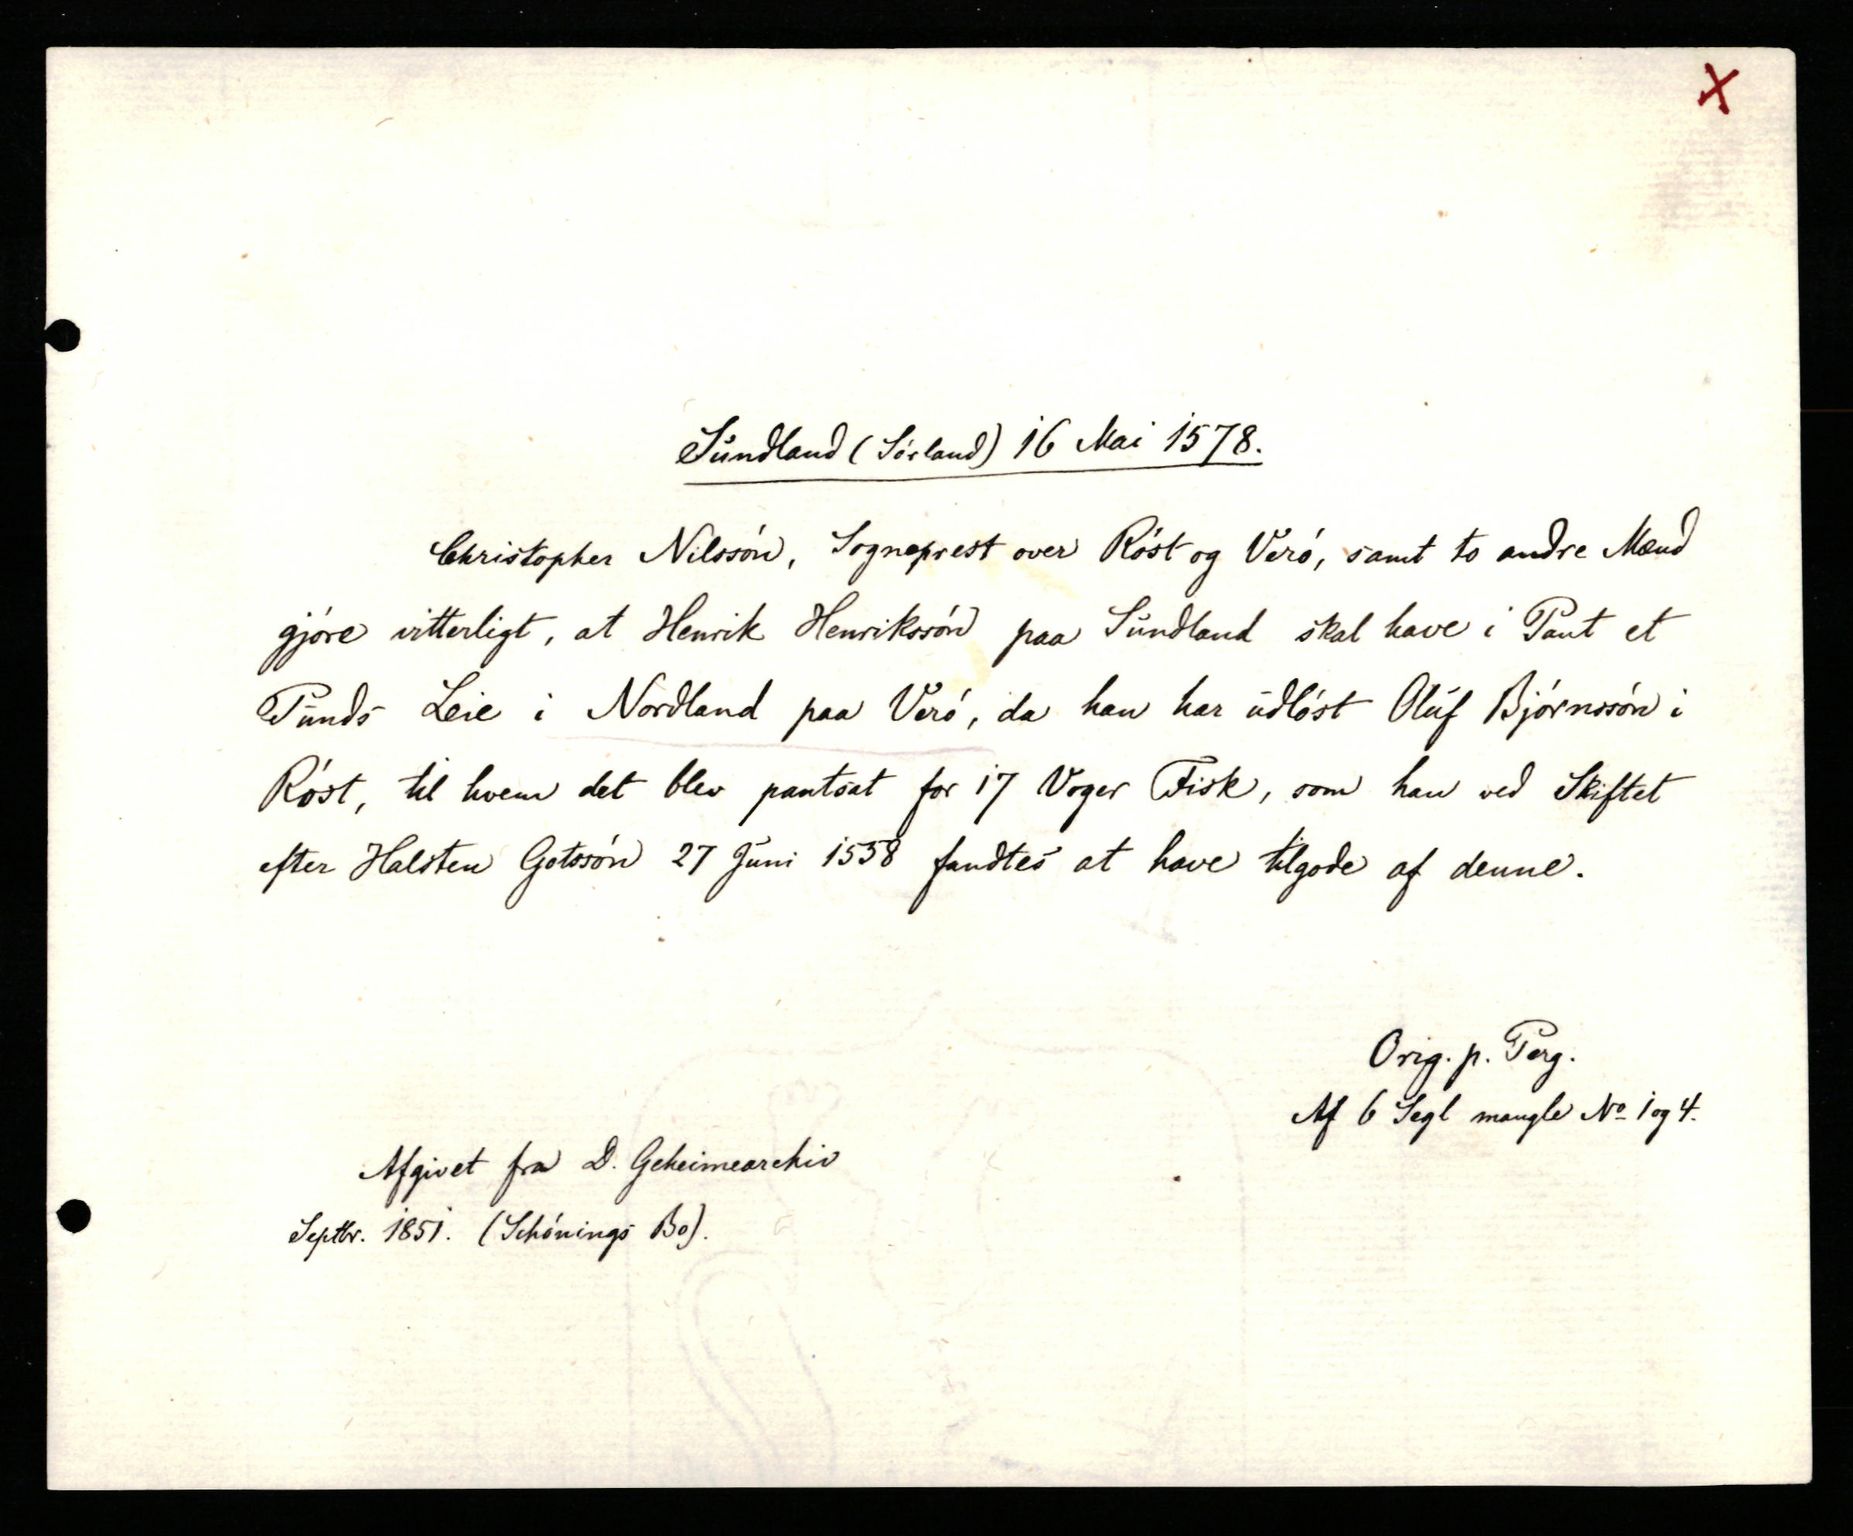 X
Sundland (Sórland) 16 Mai 1578.
Christopher Nilssón, Sogneprest over Róst og Veró, samt to andre Mænd
gjóre vitterligt, at Henrik Henrikssón paa Sundland skal have i Pant et
Punds Leie i Nordland paa Veró, da han har udlóst Oluf Bjórnssón i
Róst, til hvem det blev pantsat for 17 Voger Fisk, som han ved Skiftet
efter Halsten Gotssón 27 Juni 1558 fandtes at have tilgode af denne.
Orig. p. Perg.
Af 6 Segl mangle No 1 og 4.
Afgivet fra D. Geheimearchiv
Septbr. 1851. (Schónings Bo).